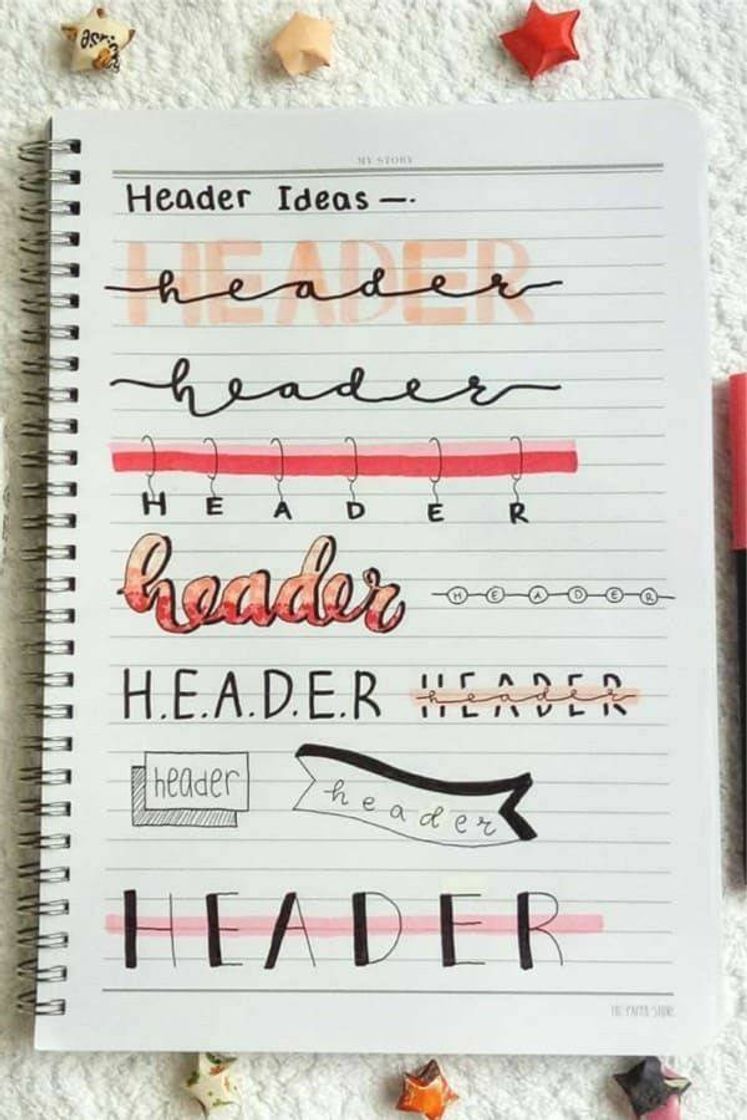 MY STORY
Header Ideas —.
HEADER
header
header
HEADER
header
HEADER
H.E.A.D.E.R
HEADER
header
header
header
HEADER
THE PAPER STORE